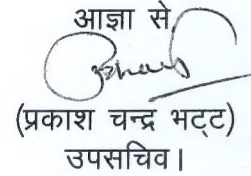 आज्ञा से
(प्रकाश चन्द्र भट्ट)
उपसचिव।